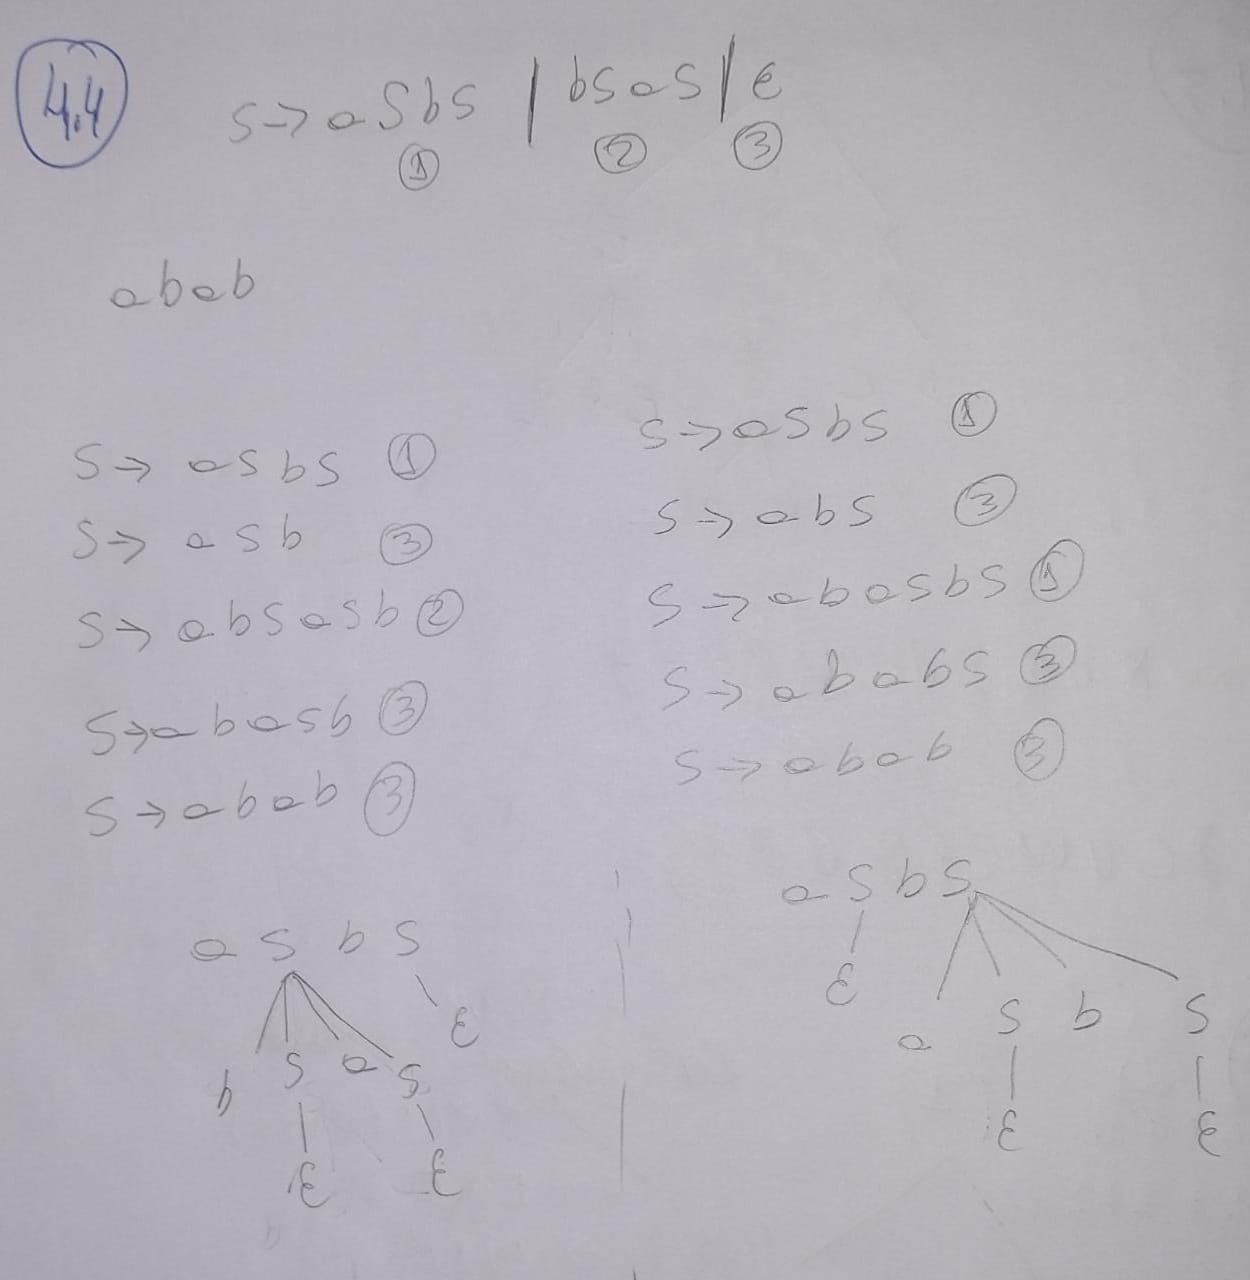 4.4
S→aSbS | bSaS | ε
① ② ③
abab
S→ aSbS ①
S→ aSb ③
S→ abSaSb ②
S→abaSb ③
S→abab ③
S→aSbS ①
S→abS ③
S→abaSbS ①
S→ababS ③
S→abab ③
a S b S
ε
b S a S
ε ε
a S b S
ε
a S b S
ε ε